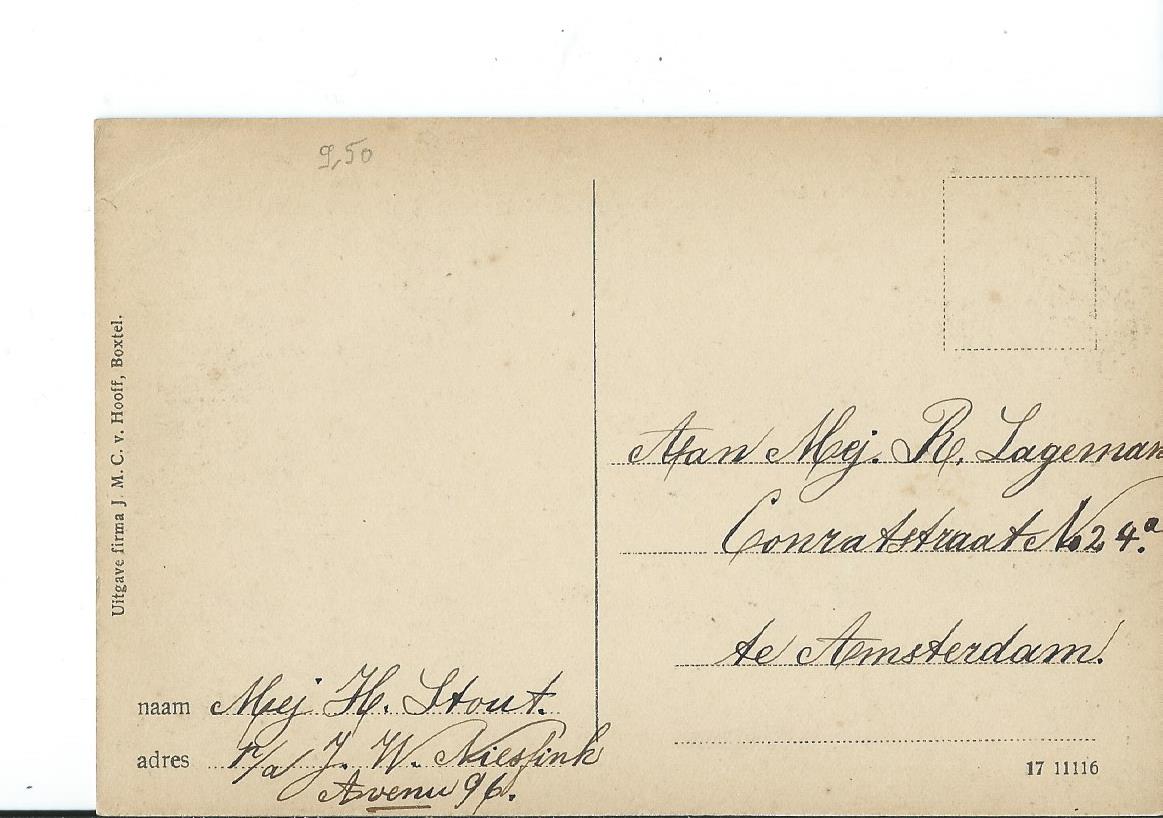 9,50
Uitgave firma J. M. C. v. Hooff, Boxtel.
Aan Mej. R. Lageman
Conratstraat No 24.a
te Amsterdam.
naam Mej H. Stout.
adres p/a J. W. Niesfink
Avenu 96.
17 11116